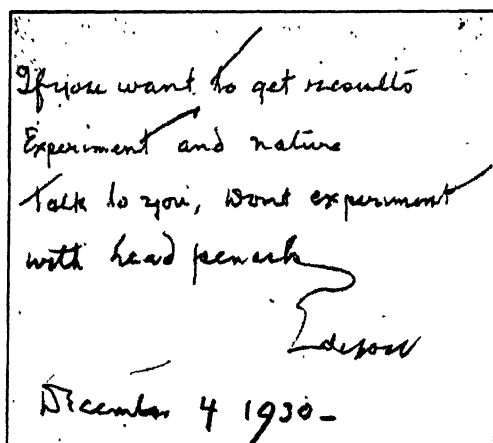 If you want to get results
Experiment and nature
Talk to you, Dont experiment
with lead pencils
Edison
December 4 1930-